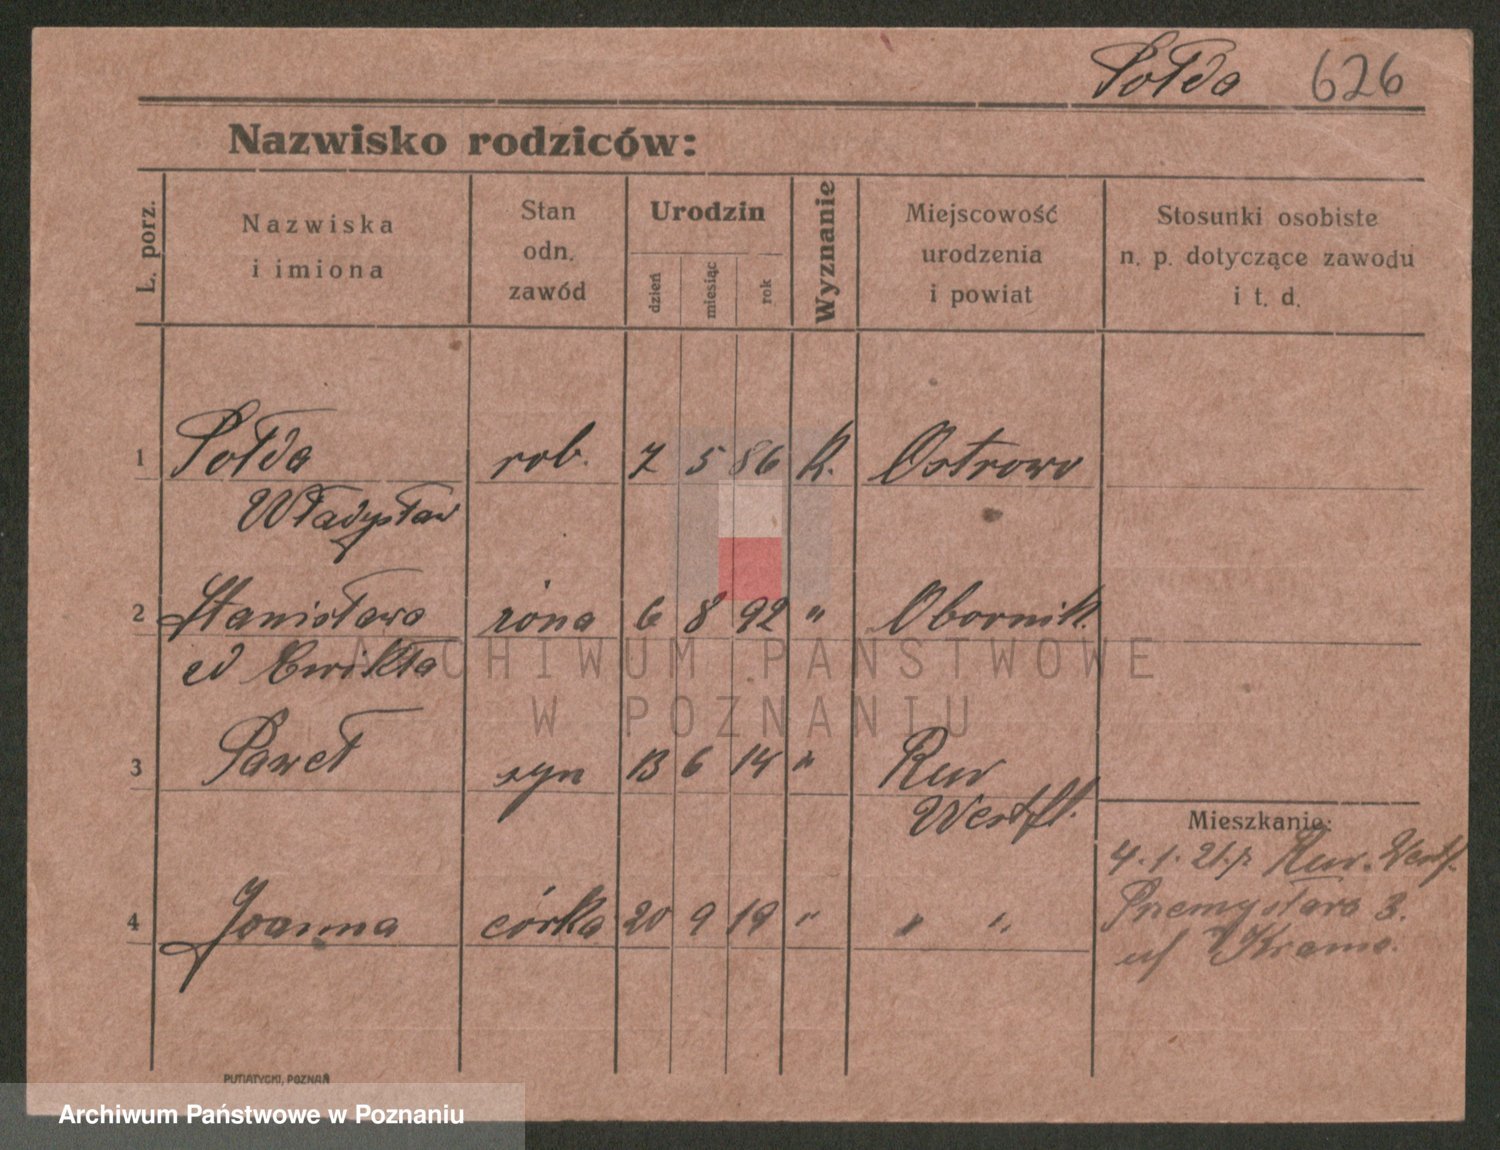 Sołda 626
Nazwisko rodziców:
L. porz.
Nazwiska
i imiona
Stan
odn.
zawód
Urodzin
dzień
miesiąc
rok
Wyznanie
Miejscowość
urodzenia
i powiat
Stosunki osobiste
n. p. dotyczące zawodu
i t. d.
1 Sołda rob. 7 5 86 k. Ostrowo
Władysław
2 Stanisława żona 6 8 92 " Obornik.
Ćwikła
3 Paweł syn 13 6 14 "
Westfl.
Mieszkanie:
4. 1. 21. Westf.
4 Joanna córka 20 9 19 " " "
Przemysława 3.
Kramo.
PUTIATYCKI, POZNAŃ
ARCHIWUM PAŃSTWOWE
W POZNANIU
Archiwum Państwowe w Poznaniu